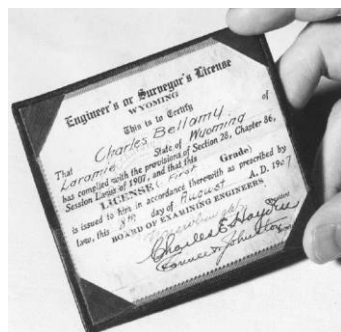 Engineer's or Surveyor's License
WYOMING
This is to Certify
That Charles Bellamy of
Laramie State of Wyoming
has complied with the provisions of Section 28, Chapter 86,
Session Laws of 1907, and that this
LICENSE (First Grade)
is issued to him in accordance therewith as prescribed by
law, this 8th day of August A. D. 1907
BOARD OF EXAMINING ENGINEERS
President
Charles E Hayden